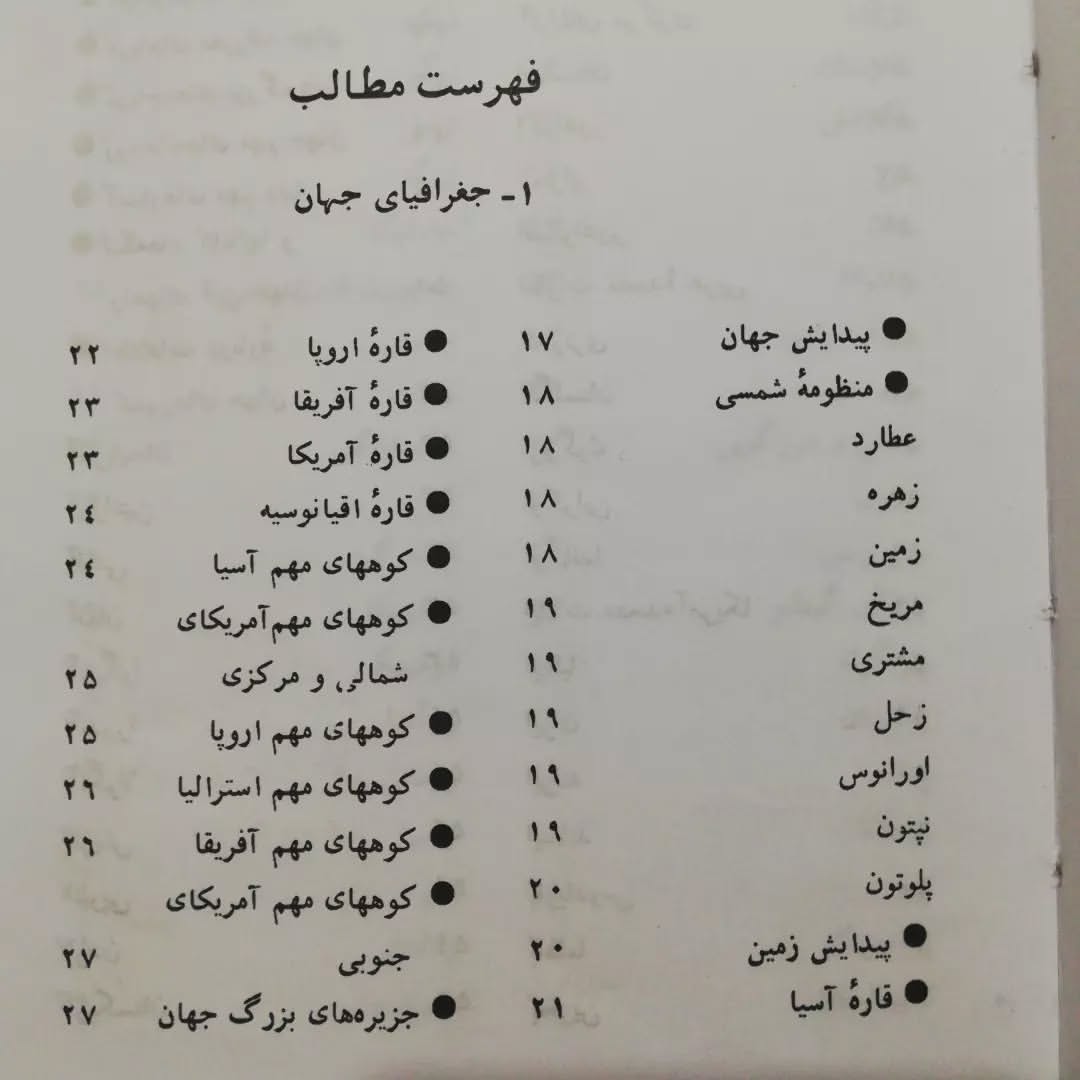 فهرست مطالب
۱- جغرافیای جهان
● پیدایش جهان ۱۷
● منظومهٔ شمسی ۱۸
عطارد ۱۸
زهره ۱۸
زمین ۱۸
مریخ ۱۹
مشتری ۱۹
زحل ۱۹
اورانوس ۱۹
نپتون ۱۹
پلوتون ۲۰
● پیدایش زمین ۲۰
● قارهٔ آسیا ۲۱
● قارهٔ اروپا ۲۲
● قارهٔ آفریقا ۲۳
● قارهٔ آمریکا ۲۳
● قارهٔ اقیانوسیه ۲٤
● کوههای مهم آسیا ۲٤
● کوههای مهم آمریکای
شمالی و مرکزی ۲۵
● کوههای مهم اروپا ۲۵
● کوههای مهم استرالیا ۲۶
● کوههای مهم آفریقا ۲۶
● کوههای مهم آمریکای
جنوبی ۲۷
● جزیره‌های بزرگ جهان ۲۷